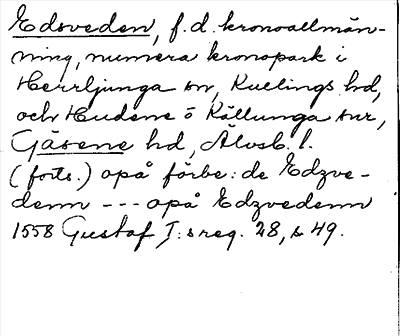 Edsveden, f.d. kronoallmän-
ning, numera kronopark i
Herrljunga sn, Kullings hd,
och Hudene o Källunga snr,
Gäsene hd, Älvsb. l.
(forts.) opå förbe: de Edzve-
denn --- opå Edzvedenn
1558 Gustaf I:s reg. 28, s 49.